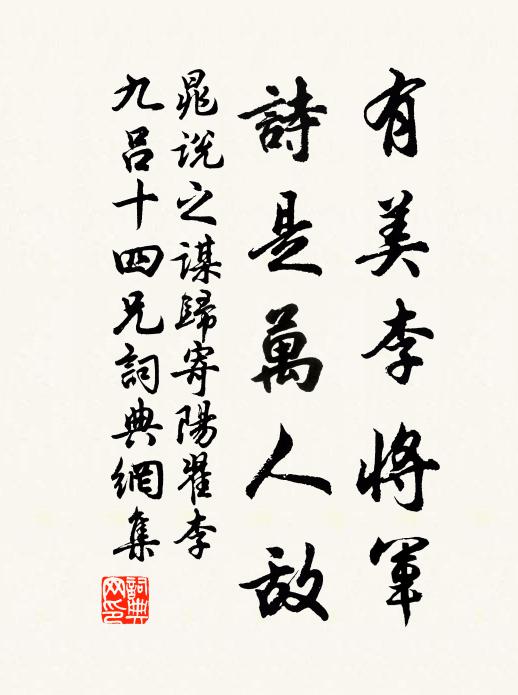 有美李將軍
詩是萬人敵
晁說之謀歸寄陽翟李
九呂十四兄詞典網集
詞典網印